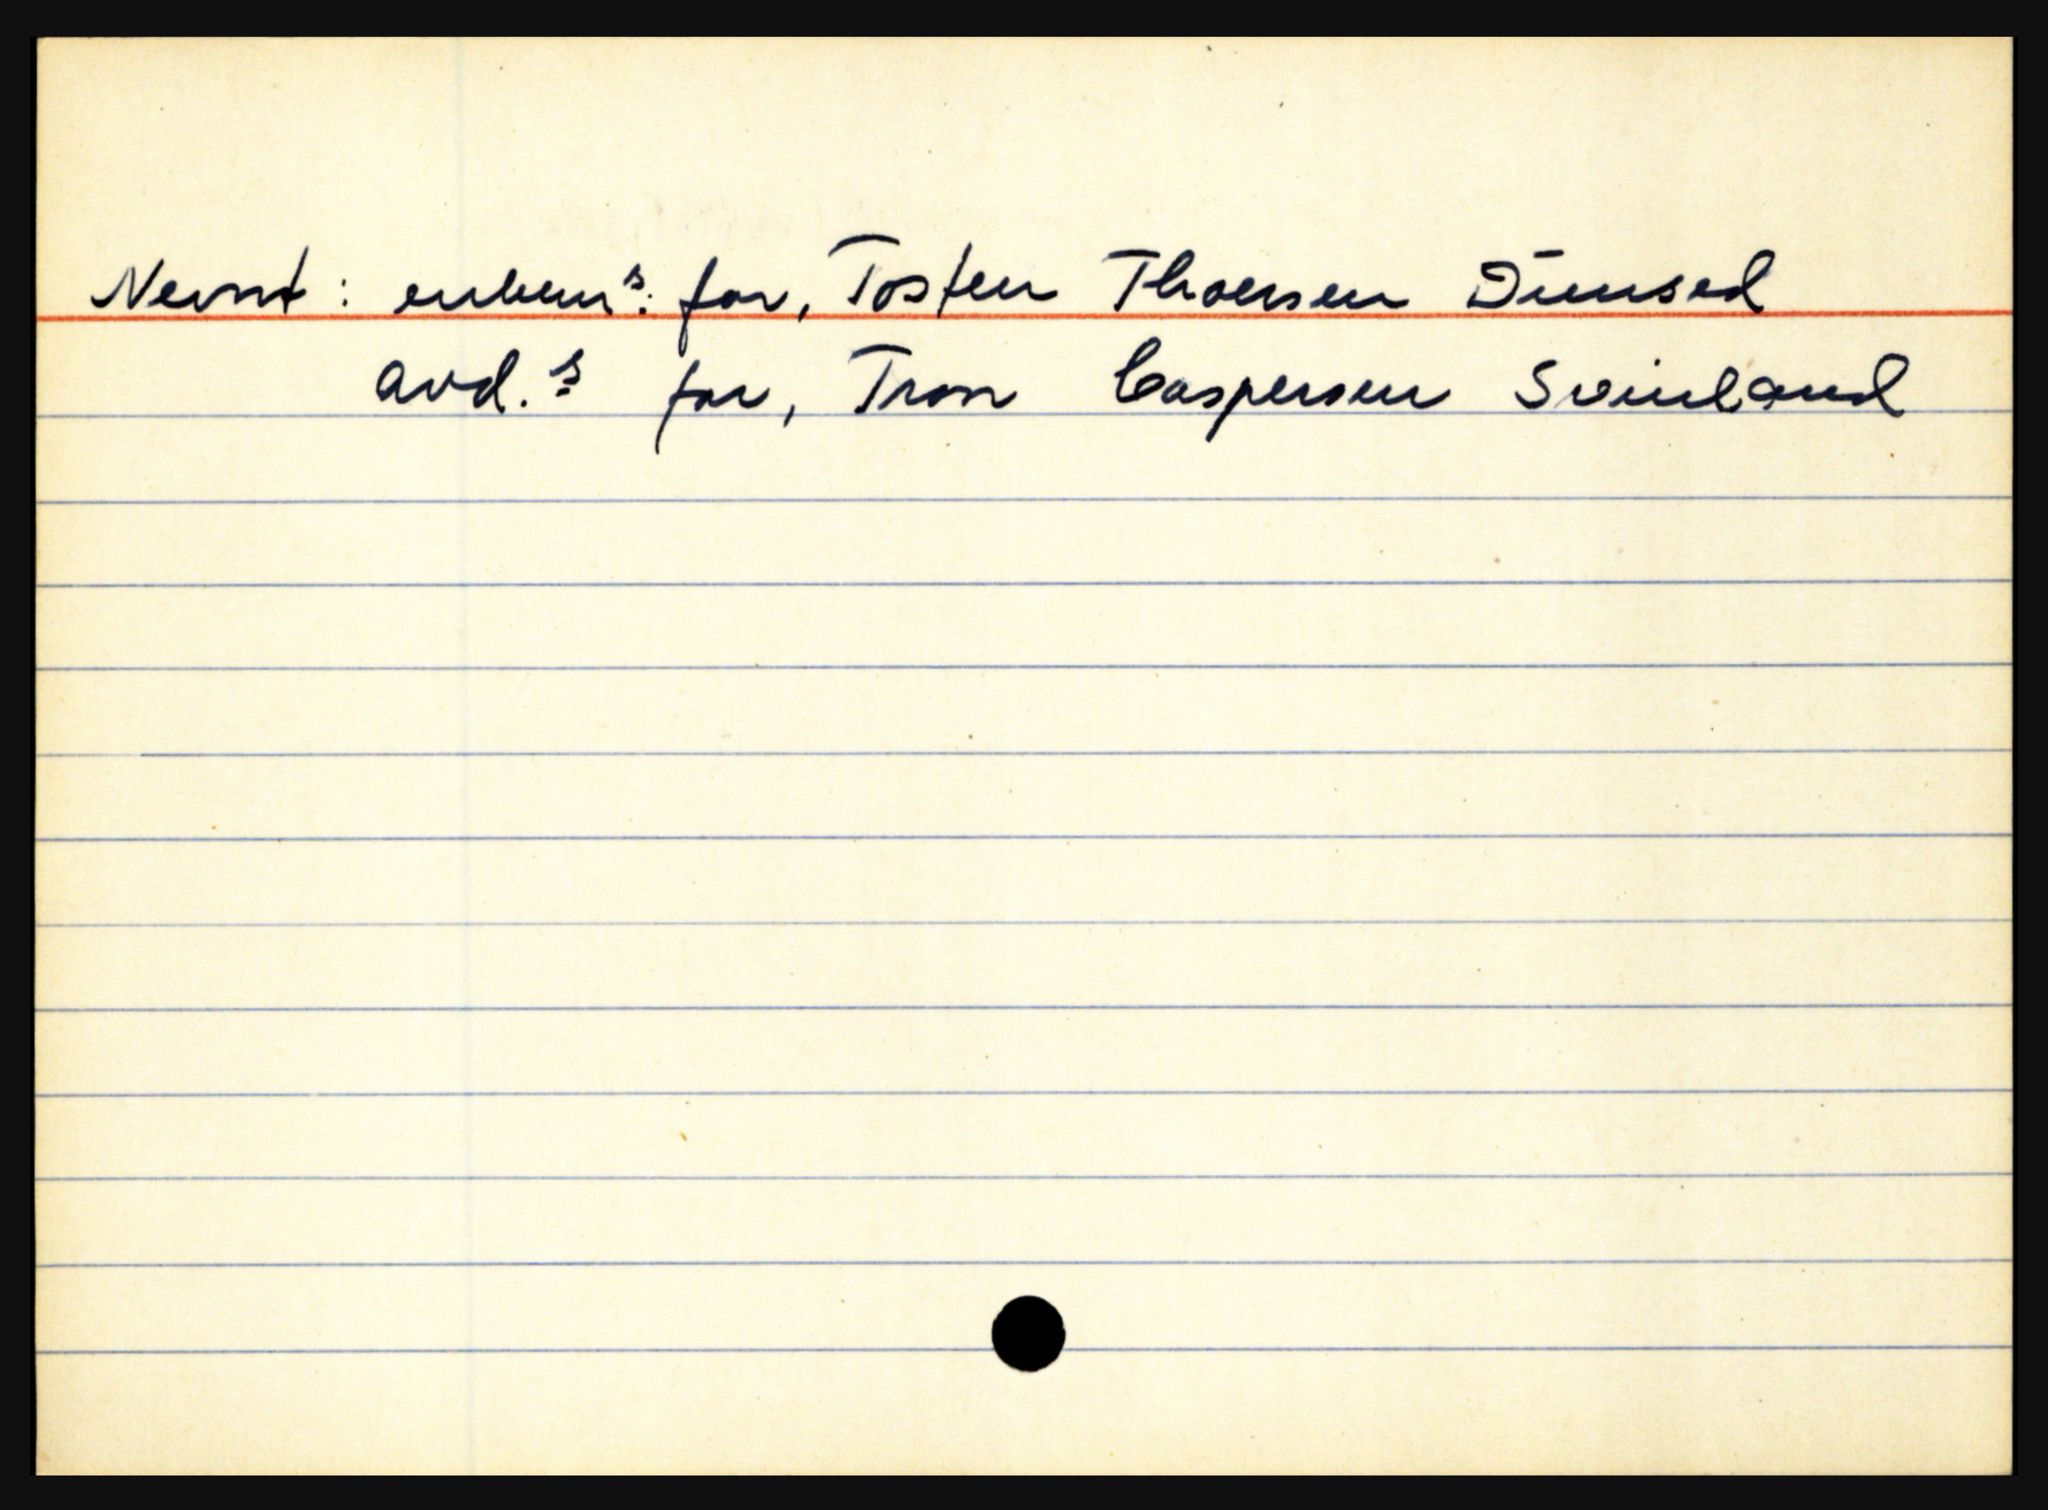 Nevnt: enkem.s: far, Tosten Thoersen Dunsed
avd.s far, Tron Caspersen Svinland